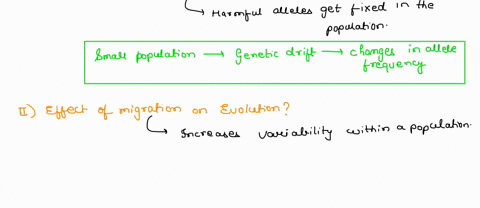 Harmful alleles get fixed in the
population.
Small population → Genetic drift → changes in allele
frequency
II) Effect of migration on Evolution?
Increases variability within a population.